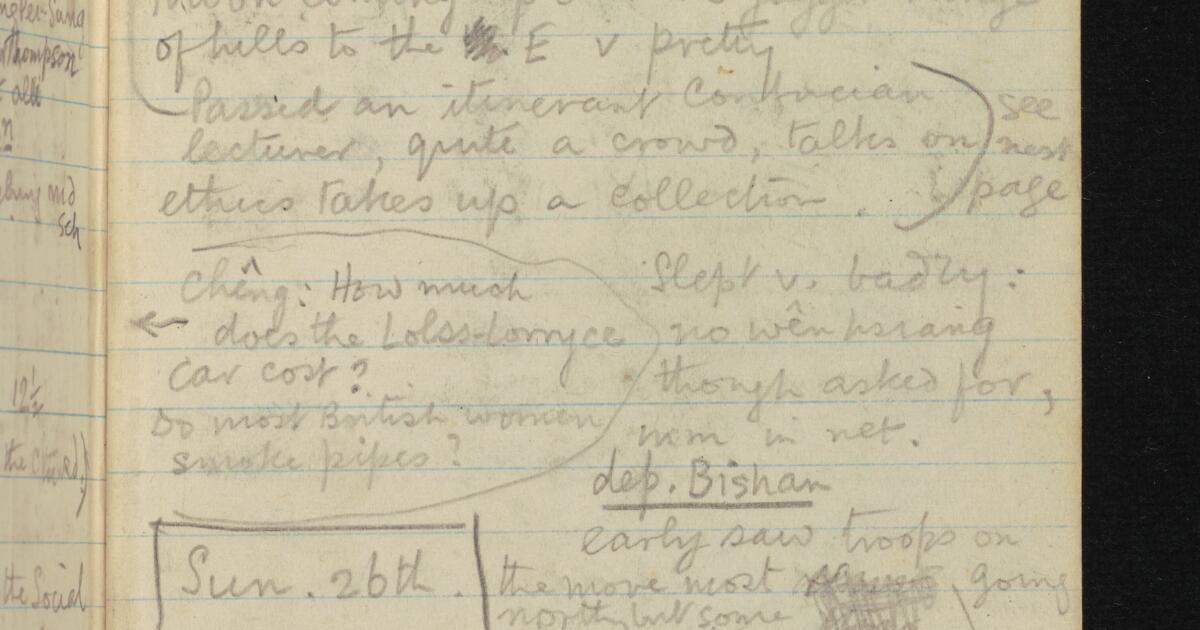 of hills to the E v pretty
Passed an itinerant Confucian
lecturer, quite a crowd, talks on
ethics takes up a collection.
see
next
page
Chêng: How much
does the Lolss-Lorryce
car cost?
Do most British women
smoke pipes?
Slept v. badly:
no wên hsiang
though asked for,
in net.
dep. Bishan
early saw troops on
Sun. 26th.
the move most going
north, but some
Thompson
sch
12½
the Social